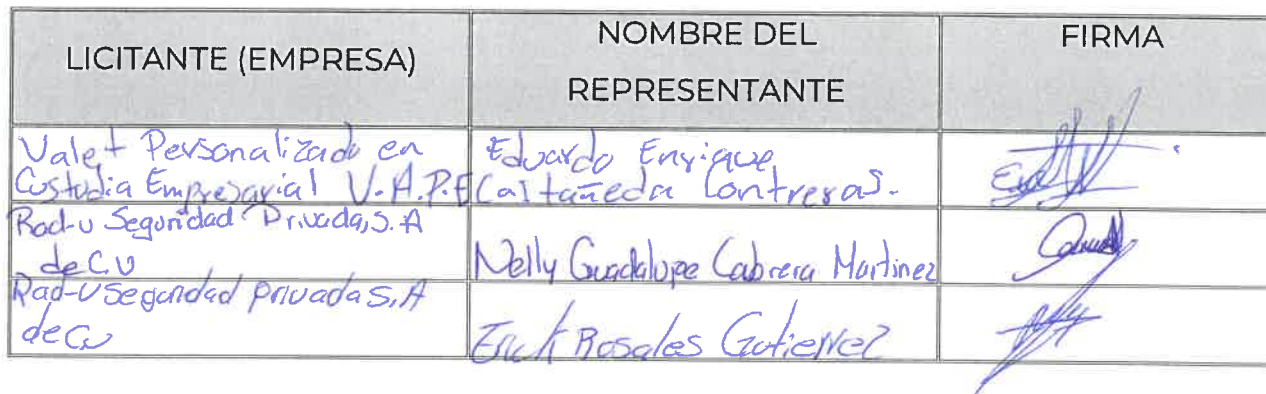 LICITANTE (EMPRESA)
NOMBRE DEL
REPRESENTANTE
FIRMA
Valet Personalizado en
Custodia Empresarial V.A.P.E
Eduardo Enrique
Castañeda Contreras.
Rad-u Seguridad Privada, S.A
de C.V
Nelly Guadalupe Cabrera Martinez
Rad-U Seguridad privada S.A
de CV
Erick Rosales Gutierrez